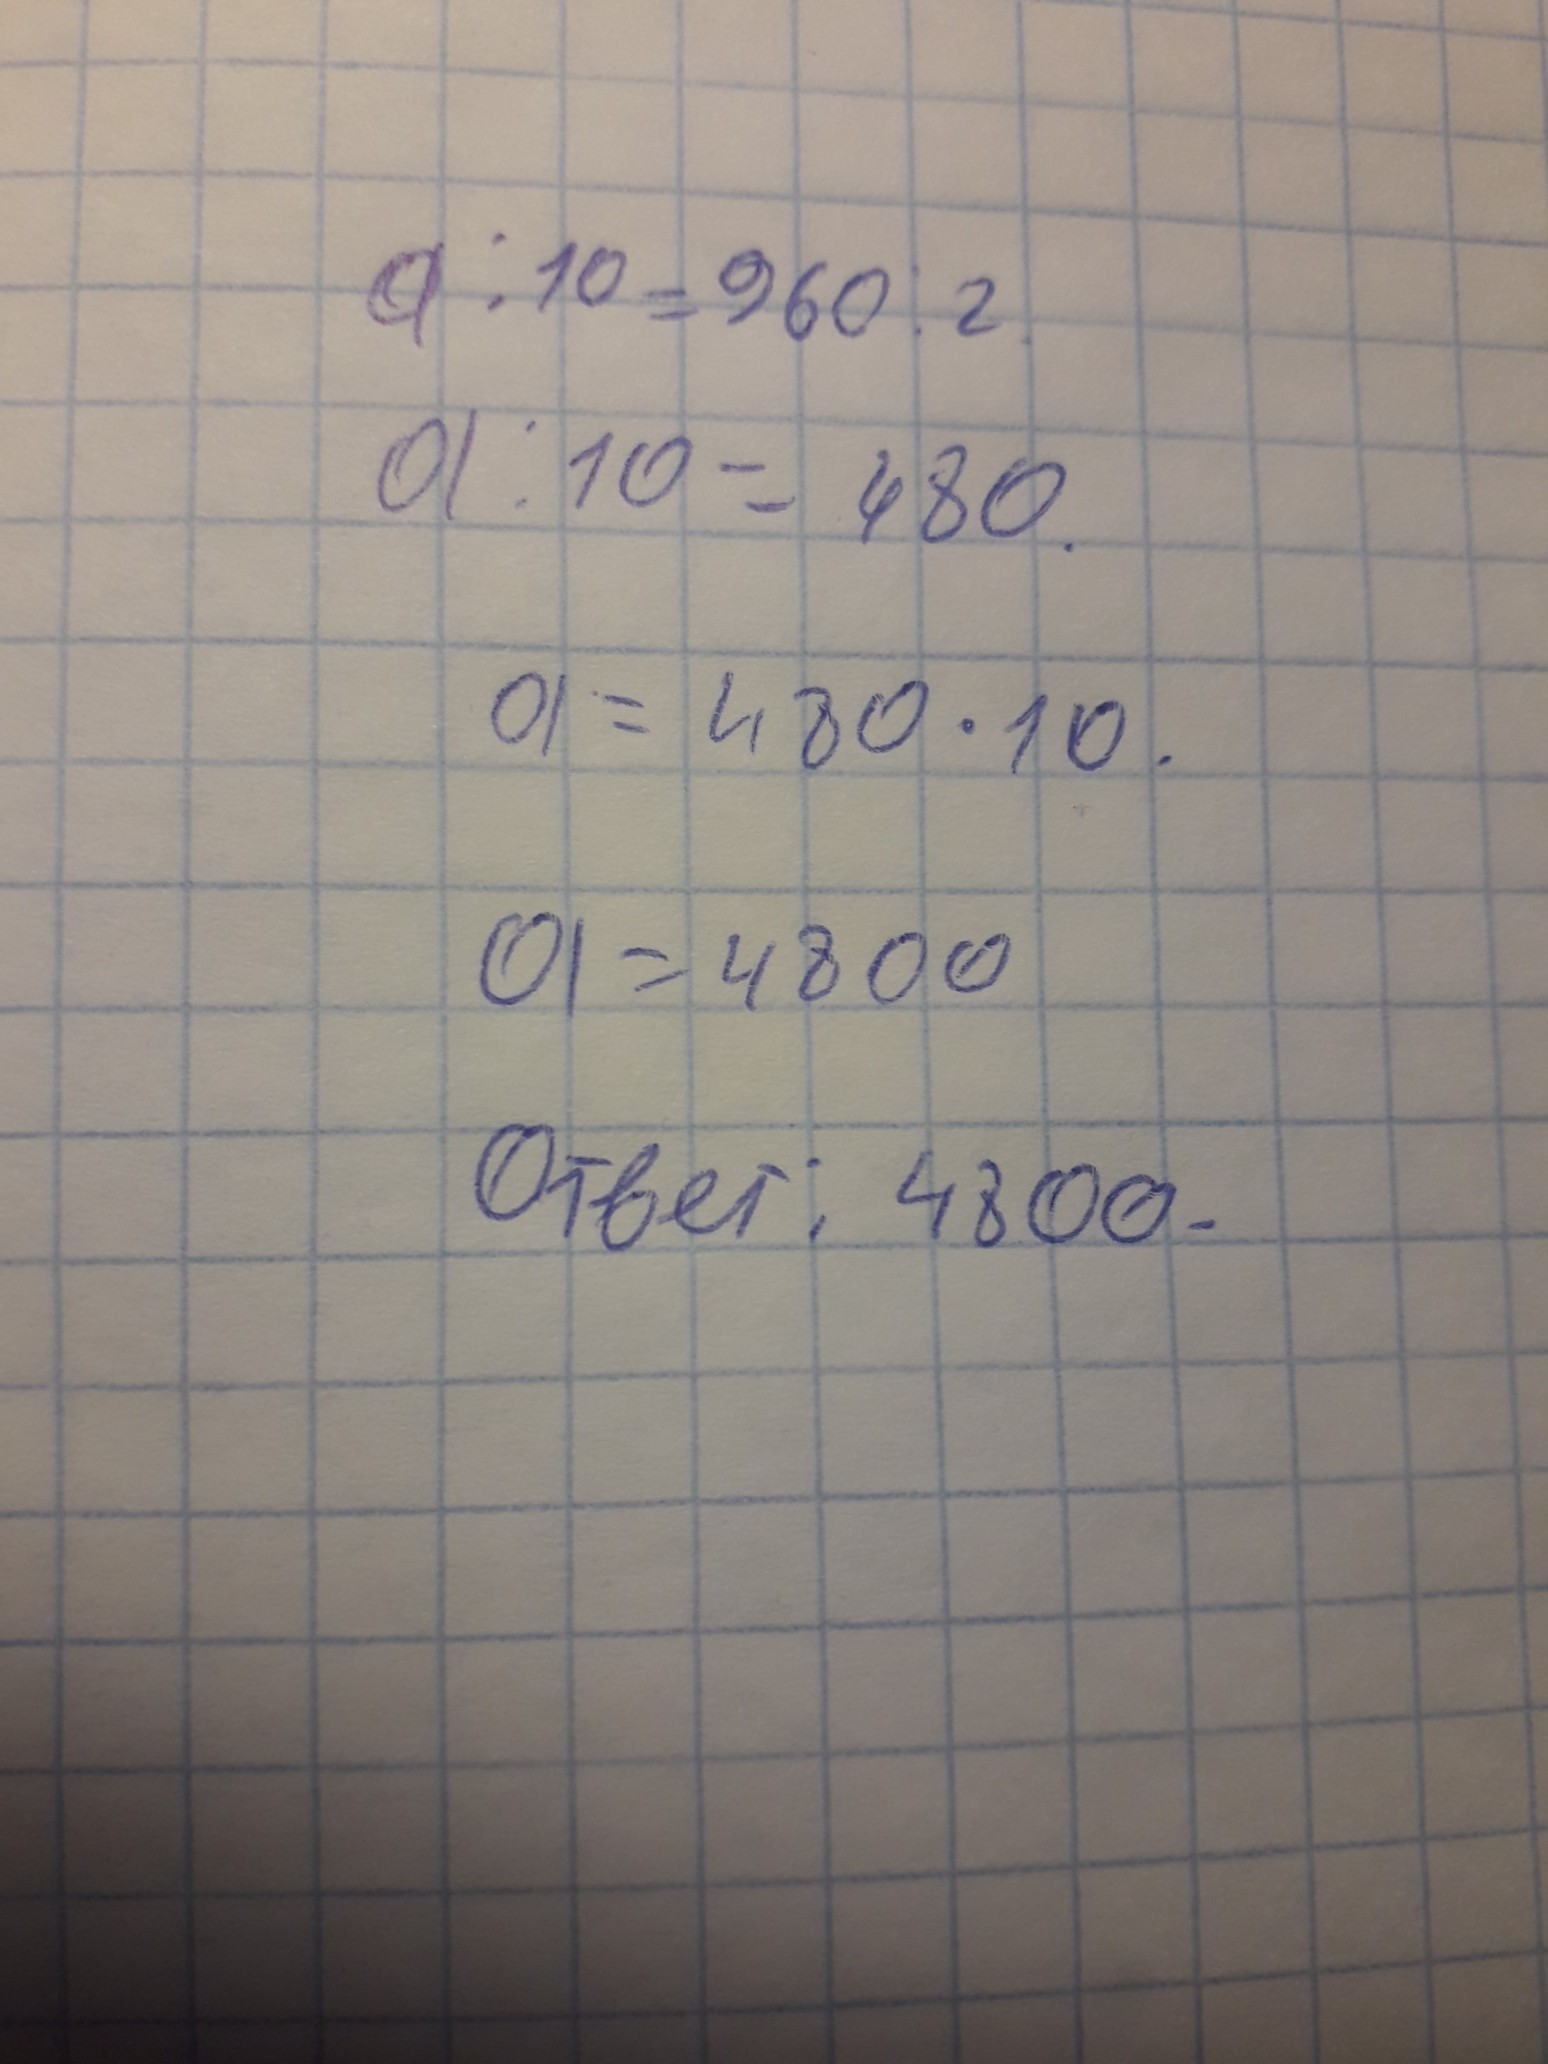 a : 10 = 960 : 2.
a : 10 = 480.
a = 480 · 10.
a = 4800
Ответ: 4800.